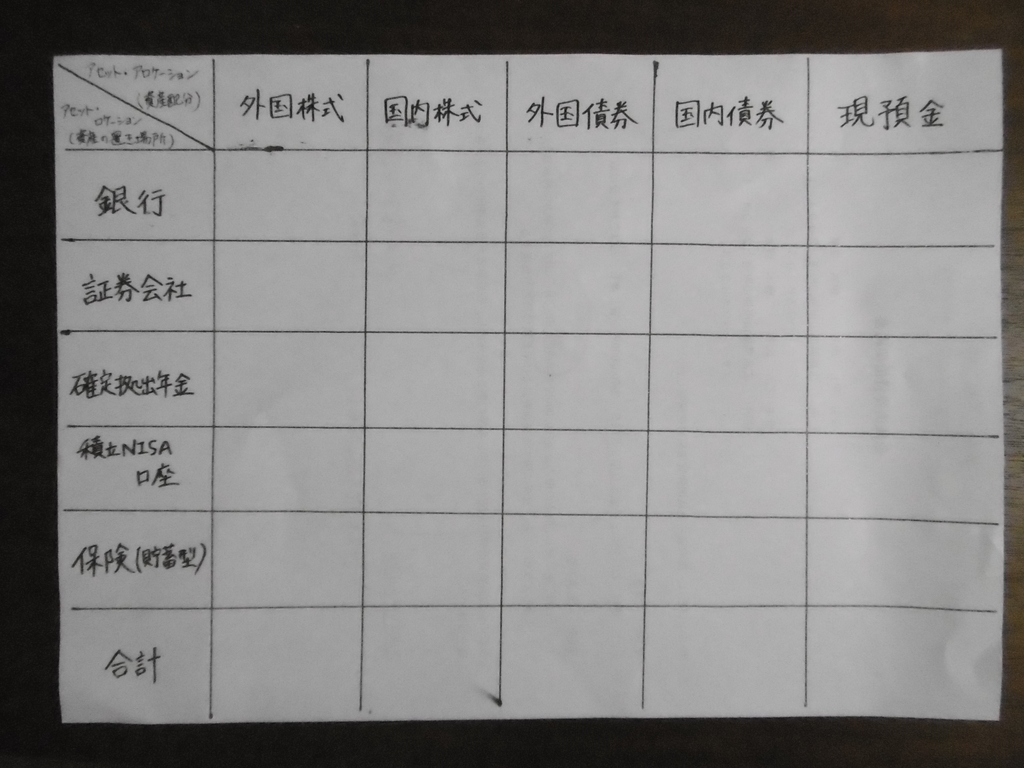 アセット・アロケーション
(資産配分)
アセット・
ロケーション
(資産の置き場所)
外国株式
国内株式
外国債券
国内債券
現預金
銀行
証券会社
確定拠出年金
積立NISA
口座
保険(貯蓄型)
合計